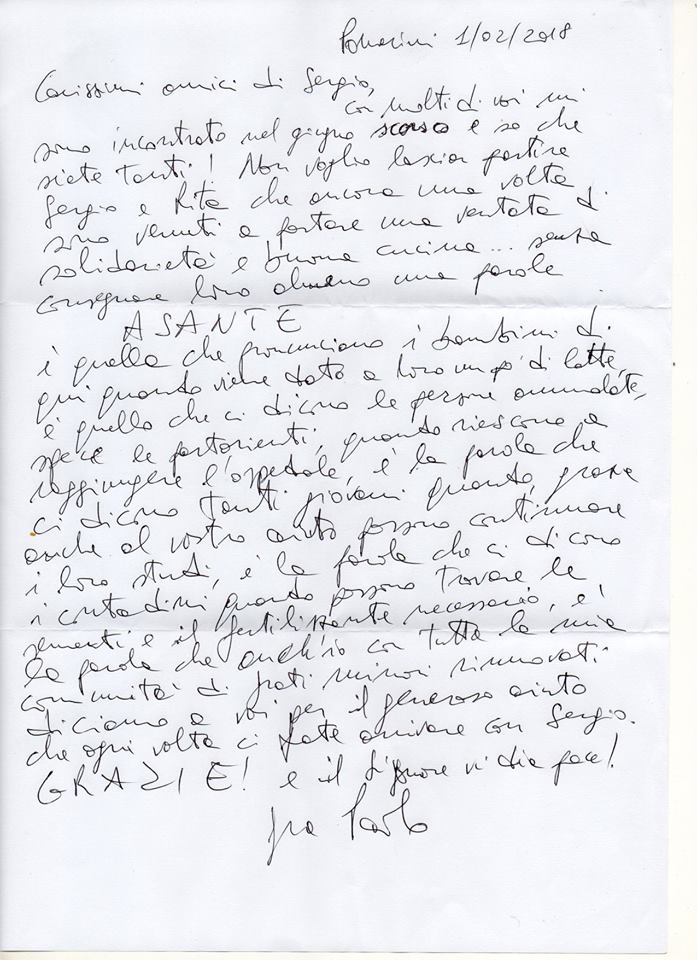 Pomerini 1/02/2018
Carissimi amici di Sergio,
con molti di voi mi
sono incontrato nel giugno scorso e so che
siete tanti! Non voglio lasciar partire
Sergio e Rita che ancora una volta
sono venuti a portare una ventata di
solidarietà e buona cucina... senza
consegnare loro almeno una parola
ASANTE
è quella che pronunciano i bambini di
qui quando viene dato a loro un po' di latte,
è quello che ci dicono le persone ammalate,
specie le partorienti, quando riescono a
raggiungere l'ospedale, è la parola che
ci dicono tanti giovani quando, grazie
anche al vostro aiuto possono continuare
i loro studi, è la parola che ci dicono
i contadini quando possono trovare le
sementi e il fertilizzante necessario, è
la parola che anch'io con tutta la mia
comunità di frati minori rinnovati
diciamo a voi per il generoso aiuto
che ogni volta ci fate arrivare con Sergio.
GRAZIE! e il Signore vi dia pace!
fra Paolo